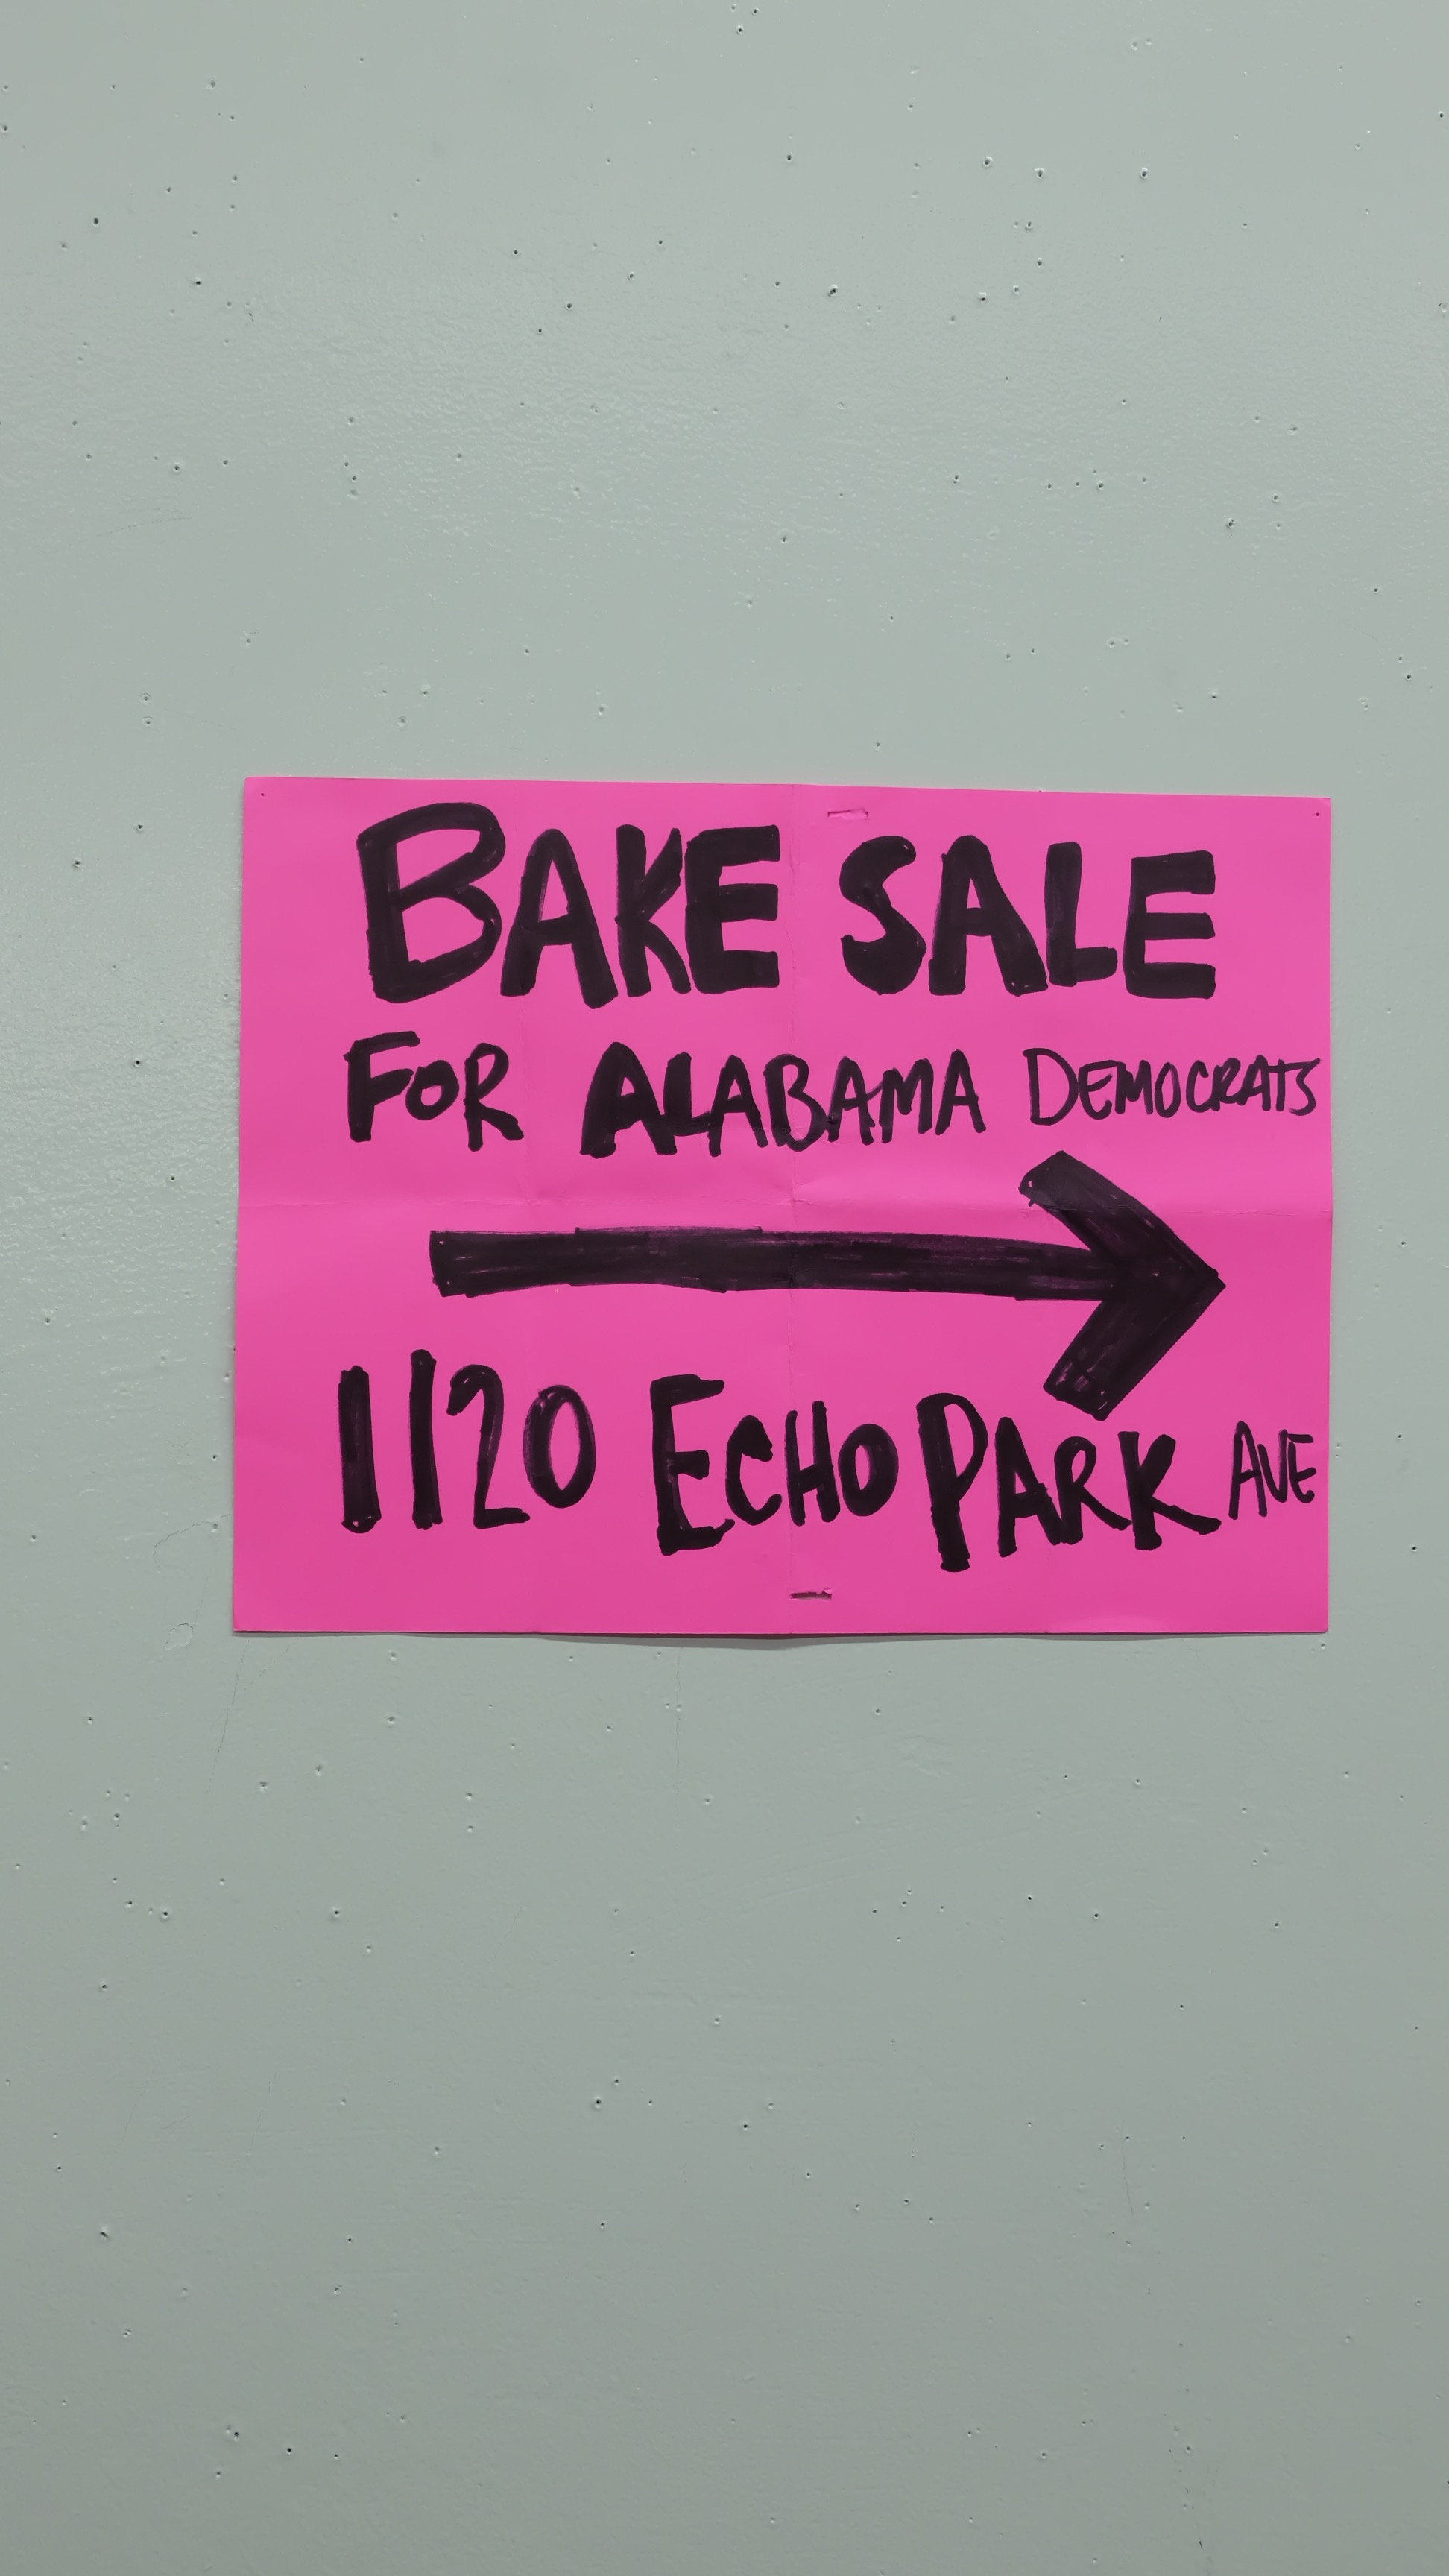 BAKE SALE
FOR ALABAMA DEMOCRATS
1120 ECHO PARK AVE